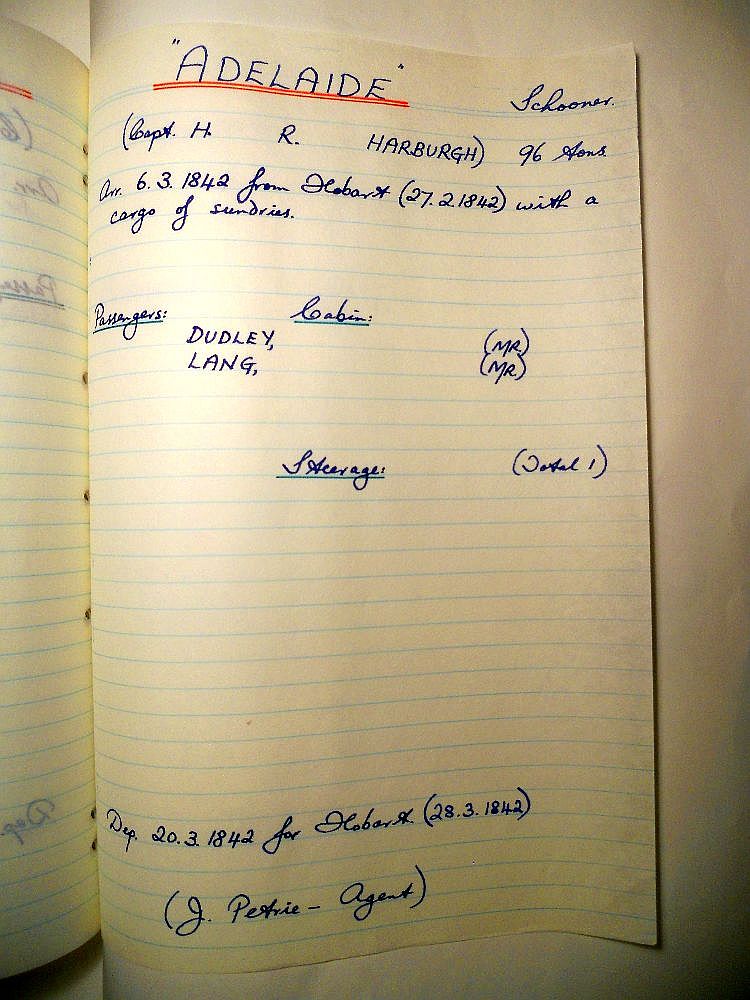 "ADELAIDE"
Schooner.
(Capt. H. R. HARBURGH) 96 tons.
Arr. 6.3.1842 from Hobart (27.2.1842) with a
cargo of sundries.
Passengers: Cabin:
DUDLEY, (MR.)
LANG, (MR.)
Steerage: (Total 1)
Dep. 20.3.1842 for Hobart (28.3.1842)
(J. Petrie - Agent)